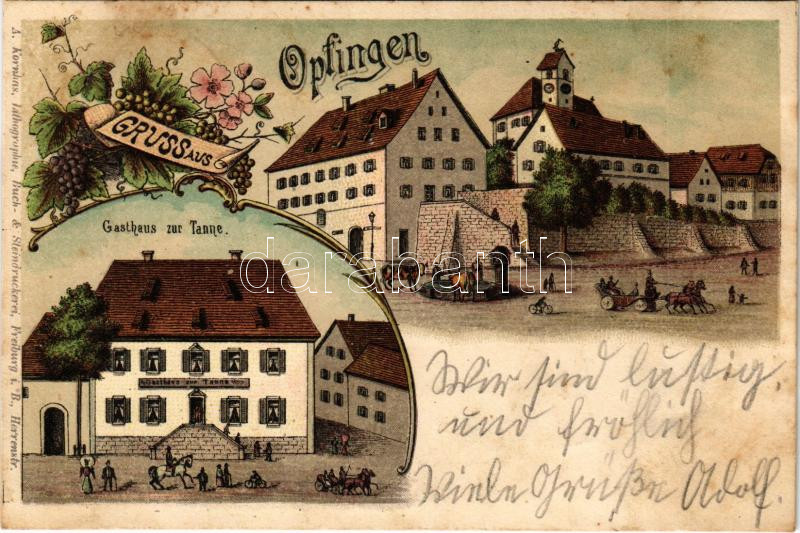 Opfingen
GRUSS AUS
Gasthaus zur Tanne.
Gasthaus zur Tanne
darabanth
A. Kornhas, Lithographie, Buch- & Steindruckerei, Freiburg i. B., Herrenstr.
Wir sind lustig,
und fröhlich
Viele Grüße Adolf.